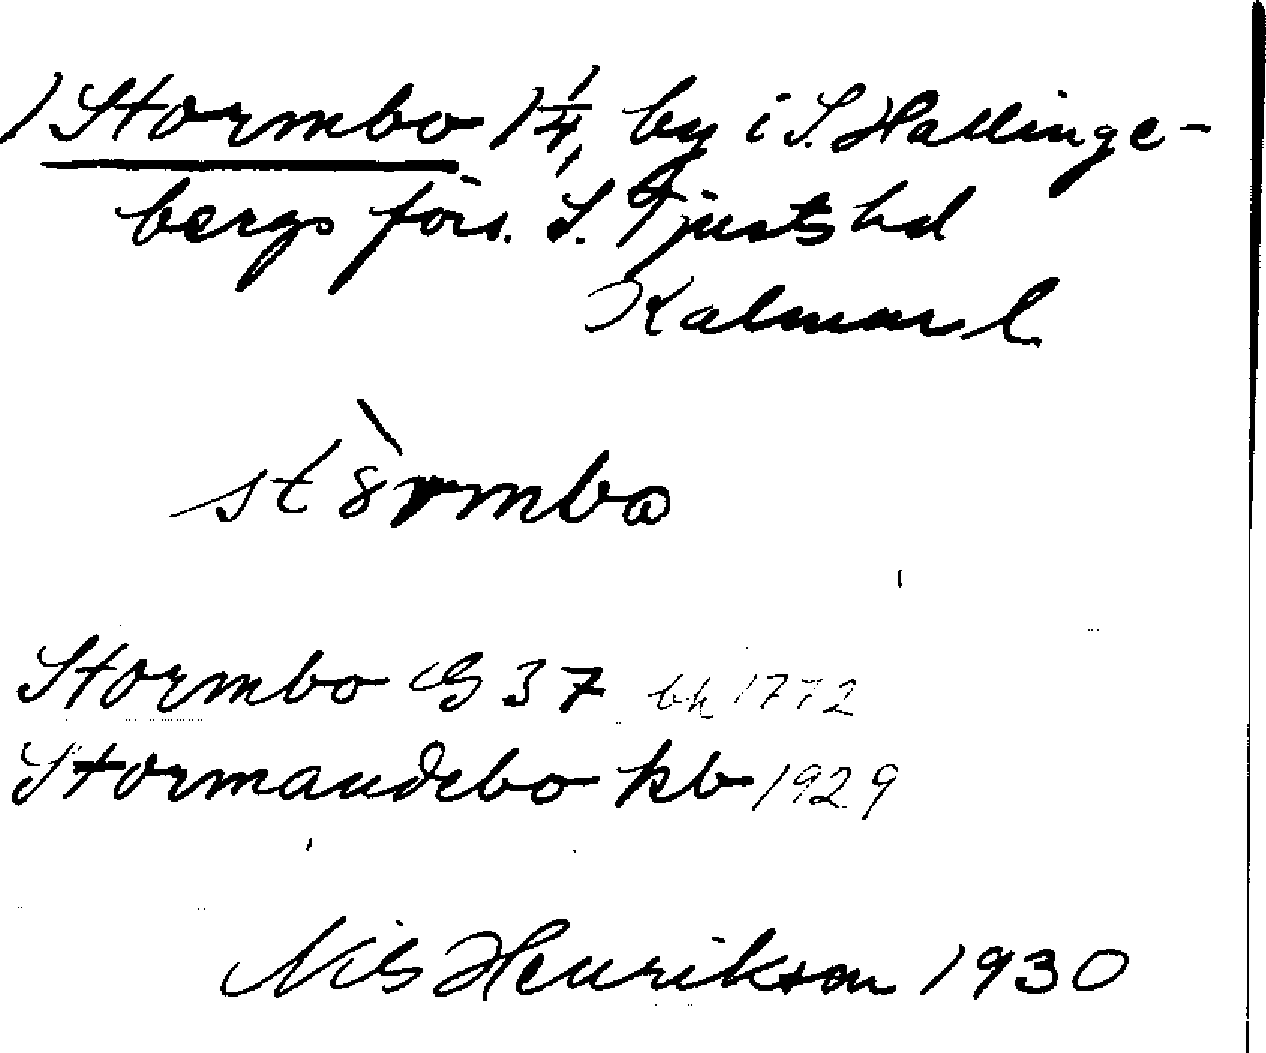 1) Stormbo 1 1/4, by i S. Hallinge-
bergs förs. S. Tjusts hd
Kalmar l
stòrmbo
Stormbo G 37 bk 1772
Stormandebo kb 1929
Nils Henrikson 1930